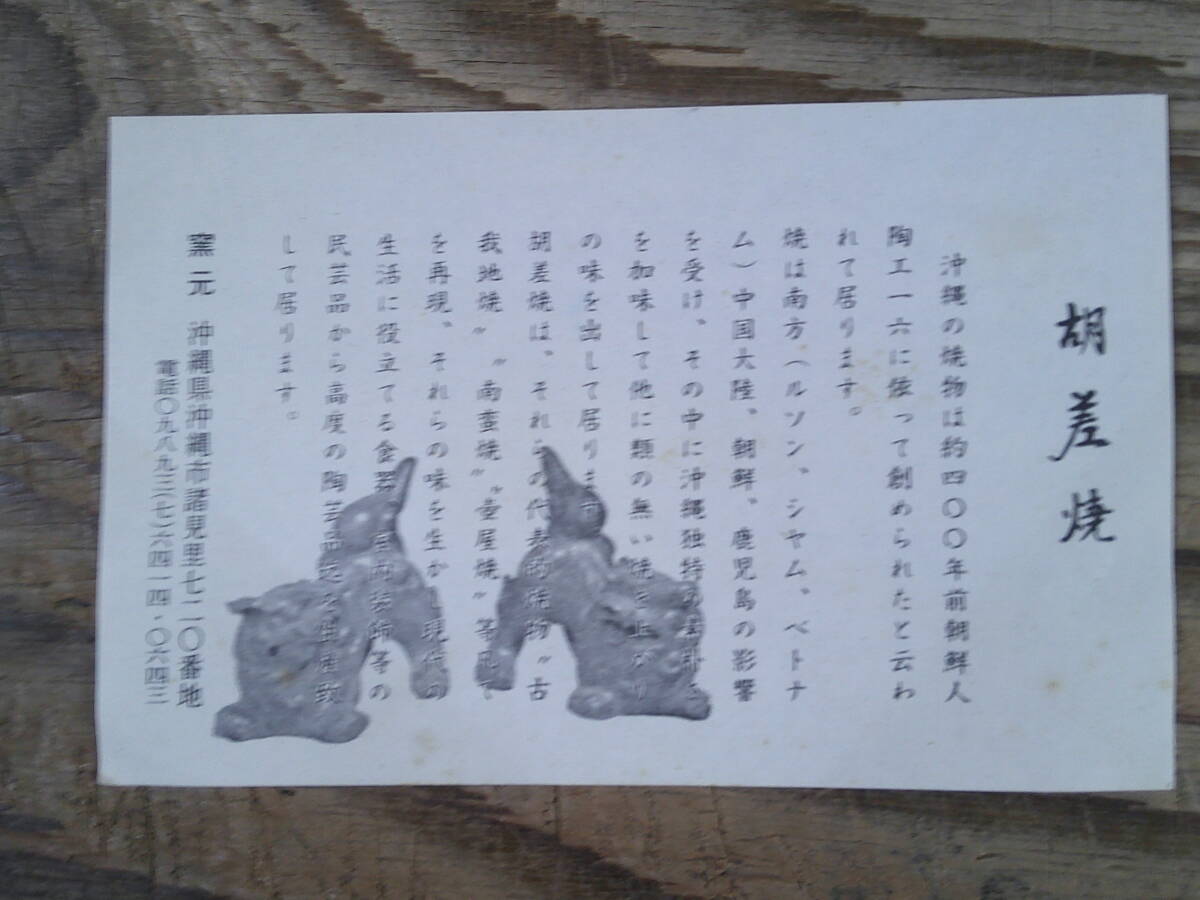 胡差焼
沖縄の焼物は約四〇〇年前朝鮮人
陶工一六に依って創められたと云わ
れて居ります。
焼は南方（ルソン、シヤム、ベトナ
ム）中国大陸、朝鮮、鹿児島の影響
を受け、その中に沖縄独特の
を加味して他に類の無い焼き上がり
の味を出して居ります
胡差焼は、それらの代表的焼物〝古
我地焼〟〝南蛮焼〟〝壺屋焼〟等凡て
を再現、それらの味を生かし現代の
生活に役立てる食器、室内装飾等の
民芸品から高度の陶芸品迄を製作致
して居ります。
窯元 沖縄県沖縄市諸見里七二〇番地
電話〇九八九三七ー六四一四・〇六四三